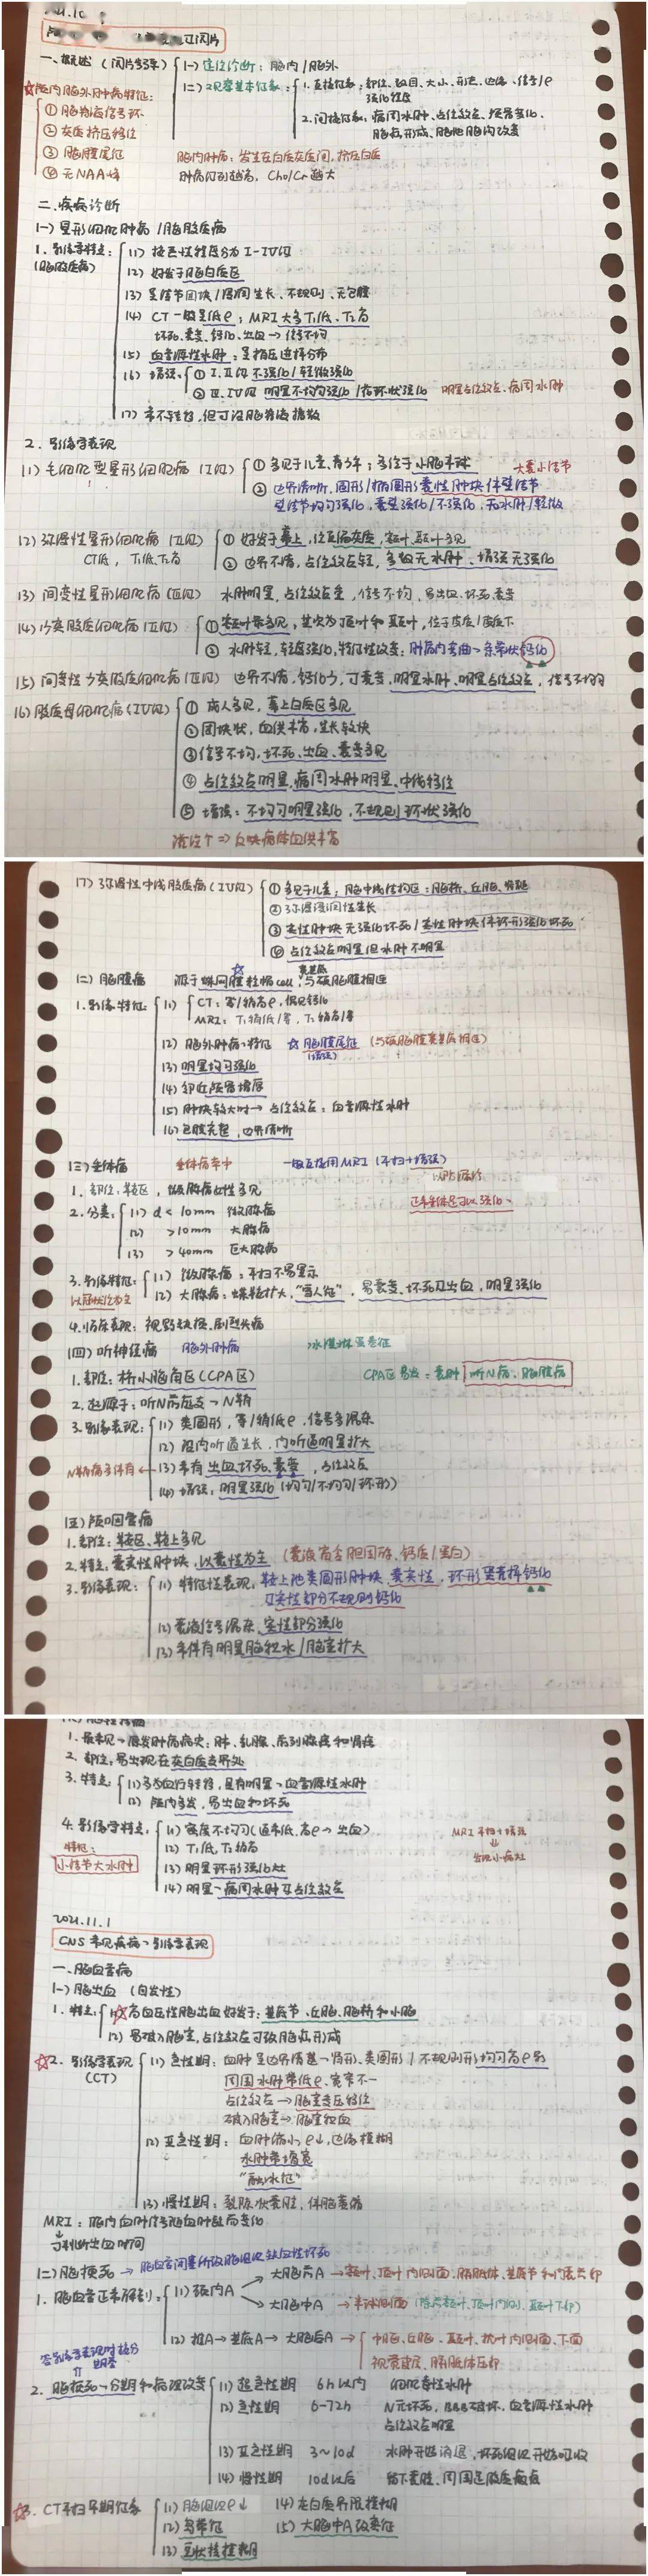 一、概述（阅片要求）
(一) 定位诊断：脑内/脑外
(二) 观察基本征象：1. 直接征象：部位、数目、大小、形态、边缘、信号/ρ
强化程度
2. 间接征象：病周水肿、占位效应、颅骨变化、
脑疝形成、脑池脑沟改变
☆脑内脑外肿瘤特征：
① 脑脊液信号环
② 灰质挤压移位
③ 脑膜尾征
④ 无NAA峰
脑内肿瘤：发生在白质灰质间，挤压白质
肿瘤级别越高，Cho/Cr越大
二、疾病诊断
(一) 星形细胞肿瘤/脑胶质瘤
1. 影像学特点：
(脑胶质瘤)
(1) 按恶性程度分为I-IV级
(2) 好发于脑白质区
(3) 呈结节团块/浸润生长、不规则、无包膜
(4) CT一般呈低ρ；MRI大多T₁低、T₂高
坏死、囊变、钙化、出血→信号不均
(5) 血管源性水肿：呈指压迹样分布
(6) 增强：① I、II级 不强化/轻微强化
② III、IV级 明显不均匀强化/花环状强化 明显占位效应、病周水肿
(7) 常不转移，但可沿脑脊液播散
2. 影像学表现
(1) 毛细胞型星形细胞瘤（I级） ① 多见于儿童、青少年；多位于小脑半球 大囊小结节
② 边界清晰、圆形/椭圆形囊性肿块伴壁结节
壁结节均匀强化、囊壁强化/不强化、无水肿/轻微
(2) 弥漫性星形细胞瘤（II级） ① 好发于幕上，位置偏灰质，额叶、颞叶多见
CT低，T₁低、T₂高
② 边界不清，占位效应轻，多数无水肿、增强无强化
(3) 间变性星形细胞瘤（III级） 水肿明显，占位效应重，信号不均，易出血、坏死、囊变
(4) 少突胶质细胞瘤（II级） ① 额叶最多见，其次为顶叶和颞叶，位于皮层/皮质下
② 水肿轻，轻度强化，特征性改变：肿瘤内弯曲、条带状钙化
(5) 间变性少突胶质细胞瘤（III级） 边界不清，钙化少，可囊变，明显水肿、明显占位效应，信号不均匀
(6) 胶质母细胞瘤（IV级） ① 成人多见，幕上白质区多见
② 团块状，血供丰富，生长较快
③ 信号不均，坏死、出血、囊变多见
④ 占位效应明显，病周水肿明显、中线移位
⑤ 增强：不均匀明显强化，不规则环状强化
灌注↑⇒反映瘤体血供丰富
(7) 弥漫性中线胶质瘤（IV级） ① 多见于儿童，脑中线结构区：脑桥、丘脑、脊髓
② 弥漫浸润性生长
③ 实性肿块无强化坏死/实性肿块伴环形强化坏死
④ 占位效应明显但水肿不明显
(二) 脑膜瘤 源于蛛网膜粒帽cell，与硬脑膜相连
1. 影像特征：(1) CT：等/稍高ρ，偶见钙化
MRI：T₁稍低/等，T₂稍高/等
(2) 脑外肿瘤特征 ☆脑膜尾征（与硬脑膜宽基底相连）
(增强)
(3) 明显均匀强化
(4) 邻近颅骨增厚
(5) 肿块较大时→占位效应；血管源性水肿
(6) 包膜完整，边界清晰
(三) 垂体瘤 垂体瘤卒中 一般直接用MRI（平扫+增强）
以防漏诊
1. 部位：鞍区，微腺瘤女性多见
正常垂体是可以强化
2. 分类：(1) d < 10mm 微腺瘤
(2) >10mm 大腺瘤
(3) >40mm 巨大腺瘤
3. 影像特征：(1) 微腺瘤：平扫不易显示
以冠状位为主
(2) 大腺瘤：蝶鞍扩大，“雪人征”，易囊变、坏死及出血，明显强化
4. 临床表现：视野缺损、剧烈头痛
(四) 听神经瘤 脑外肿瘤 冰淇淋蛋卷征
1. 部位：桥小脑角区（CPA区） CPA区易发=囊肿 听N瘤、脑膜瘤
2. 起源于：听N前庭支→N鞘
3. 影像表现：(1) 类圆形，等/稍低ρ，信号多混杂
(2) 沿内听道生长，内听道明显扩大
N鞘瘤多伴有← (3) 常有出血、坏死、囊变，占位效应
(4) 增强：明显强化（均匀/不均匀/环形）
(五) 颅咽管瘤
1. 部位：鞍区、鞍上多见
2. 特点：囊实性肿块，以囊性为主（囊液富含胆固醇、钙质/蛋白）
3. 影像表现：(1) 特征性表现：鞍上池类圆形肿块、囊实性、环形蛋壳样钙化
及实性部分不规则钙化
(2) 囊液信号混杂，实性部分强化
(3) 常伴有明显脑积水/脑室扩大
1. 最常见原发肿瘤病史：肺、乳腺、前列腺癌和肾癌
2. 部位：易出现在灰白质交界处
3. 特点：(1) 多为血行转移，具有明显血管源性水肿
(2) 颅内多发，易出血和坏死
4. 影像学特点：(1) 密度不均匀（通常低，高ρ→出血）
特征：
小结节大水肿
(2) T₁低，T₂稍高
(3) 明显环形强化灶
(4) 明显病周水肿及占位效应
MRI 平扫+增强
⇓
发现小病灶
2021.11.1
CNS常见疾病影像学表现
一、脑血管病
(一) 脑出血（自发性）
1. 特点：(1) ☆高血压性脑出血好发于：基底节、丘脑、脑桥和小脑
(2) 易破入脑室，占位效应可致脑疝形成
☆2. 影像学表现
(CT)
(1) 急性期：血肿呈边界清楚肾形、类圆形/不规则形均匀高ρ影
周围水肿带低ρ、宽窄不一
占位效应→脑室受压移位
破入脑室→脑室积血
(2) 亚急性期：血肿缩小，ρ↓，边缘模糊
水肿带增宽
“融冰征”
(3) 慢性期：裂隙状囊腔，伴脑萎缩
MRI：脑内血肿信号随血肿龄而变化
↓
可判断出血时间
(二) 脑梗死→脑血管闭塞所致脑组织缺血性坏死
1. 脑血管正常解剖：(1) 颈内A
大脑前A→额叶、顶叶内侧面、胼胝体、基底节和内囊前部
大脑中A→半球侧面（除去额叶、顶叶内侧、颞叶下部）
(2) 椎A→基底A→大脑后A→中脑、丘脑、颞叶、枕叶内侧面、下面
视觉皮层、胼胝体压部
2. 脑梗死分期和病理改变
(1) 超急性期 6h以内 细胞毒性水肿
(2) 急性期 6-72h N元坏死，BBB破坏、血管源性水肿
占位效应明显
(3) 亚急性期 3~10d 水肿开始消退，坏死组织开始吸收
(4) 慢性期 10d以后 留下囊腔、周围是胶质瘢痕
☆3. CT平扫早期征象
(1) 脑组织ρ↓ (4) 灰白质界限模糊
(2) 岛带征 (5) 大脑中A致密征
(3) 豆状核模糊